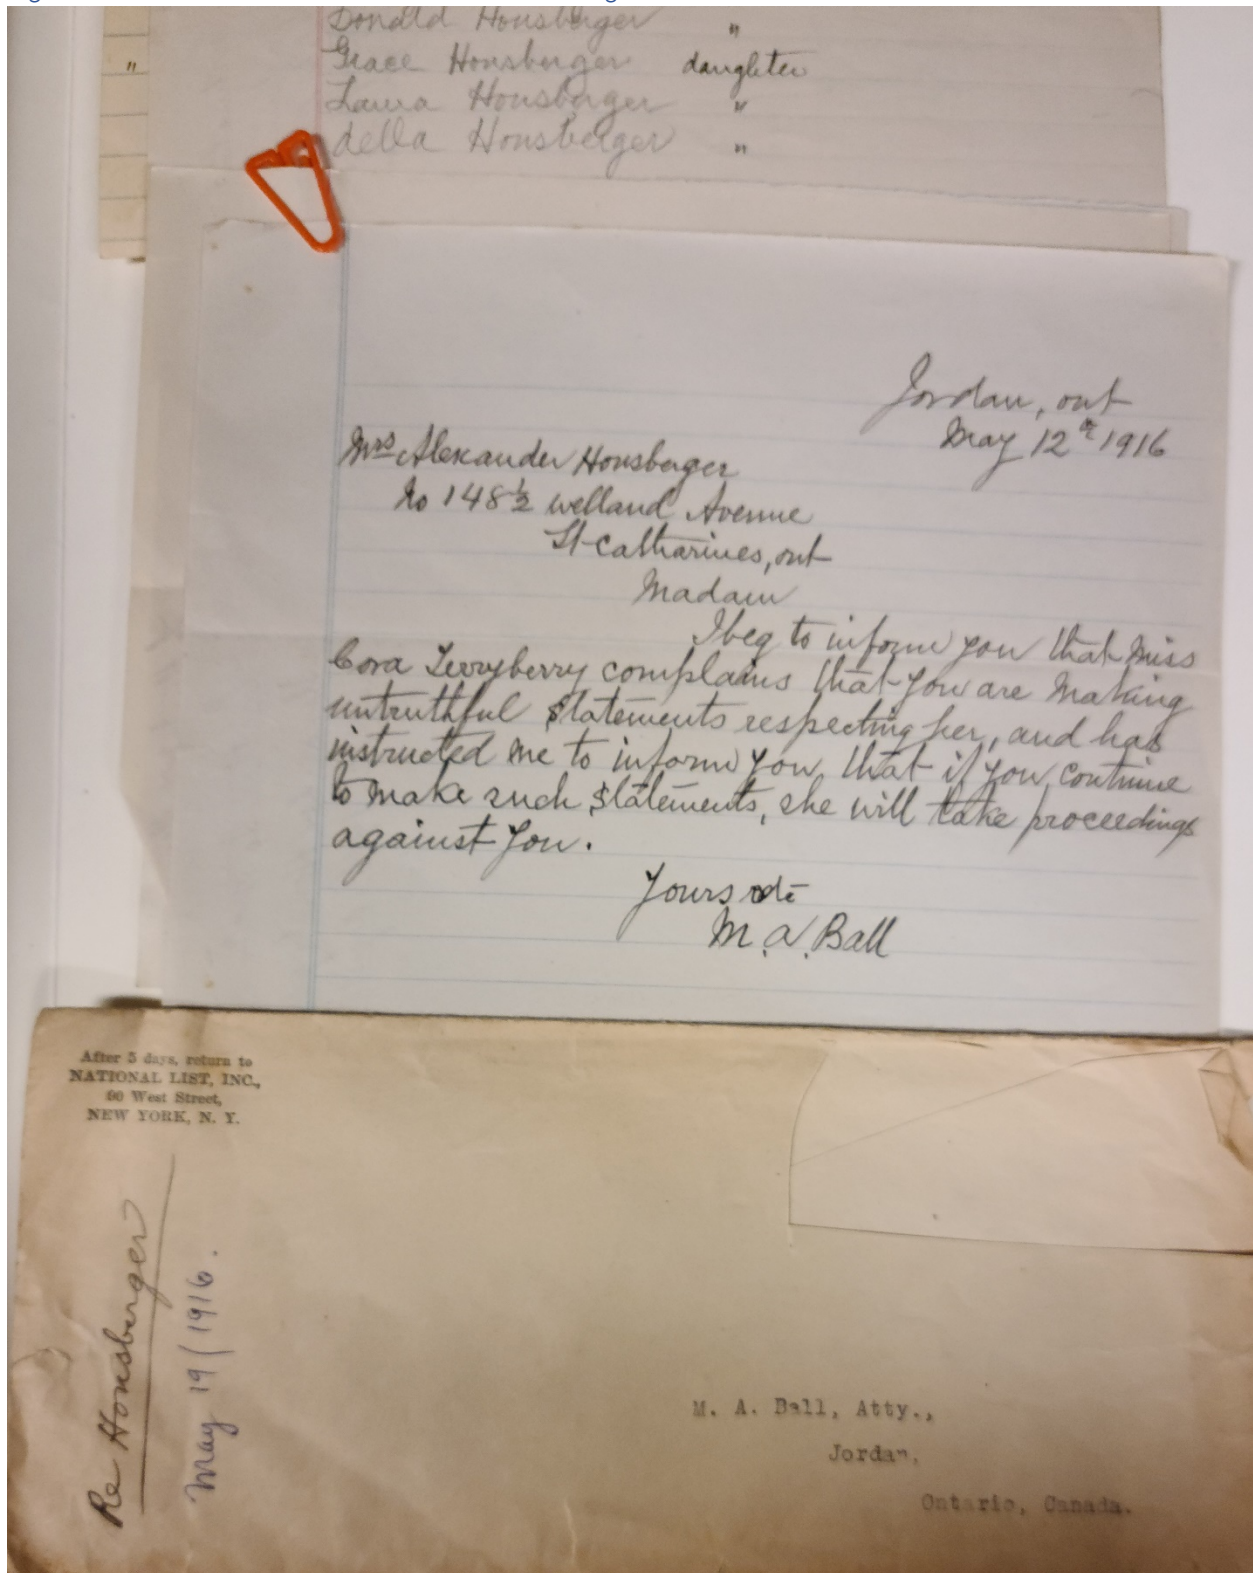 Donald Honsberger "
" Grace Honsberger daughter
Laura Honsberger "
della Honsberger "
Jordan, ont
May 12th 1916
Mrs Alexander Honsberger
No 148 1/2 welland Avenue
St Catharines, ont
Madam
I beg to inform you that Miss
Cora Terryberry complains that you are making
untruthful statements respecting her, and has
instructed me to inform you that if you continue
to make such statements, she will take proceedings
against you.
Yours etc
M. A. Ball
After 5 days, return to
NATIONAL LIST, INC.,
90 West Street,
NEW YORK, N. Y.
Re Honsberger
May 19/1916.
M. A. Ball, Atty.,
Jordan,
Ontario, Canada.